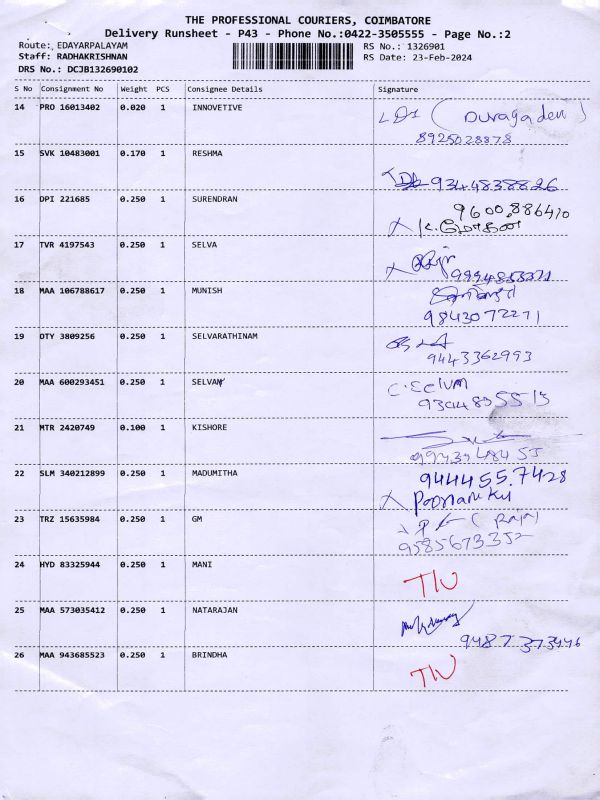 THE PROFESSIONAL COURIERS, COIMBATORE
Delivery Runsheet - P43 - Phone No.:0422-3505555 - Page No.:2
Route: EDAYARPALAYAM
Staff: RADHAKRISHNAN
DRS No.: DCJB132690102
RS No.: 1326901
RS Date: 23-Feb-2024
S No Consignment No Weight PCS Consignee Details Signature
14 PRO 16013402 0.020 1 INNOVETIVE
8925028878
15 SVK 10483001 0.170 1 RESHMA
9344838826
16 DPI 221685 0.250 1 SURENDRAN
9600.886410
17 TVR 4197543 0.250 1 SELVA
18 MAA 106788617 0.250 1 MUNISH
9843072271
19 OTY 3809256 0.250 1 SELVARATHINAM
9443362993
20 MAA 600293451 0.250 1 SELVAN
21 MTR 2420749 0.100 1 KISHORE
22 SLM 340212899 0.250 1 MADUMITHA
944455.7428
23 TRZ 15635984 0.250 1 GM
(Raja)
9585673352
24 HYD 83325944 0.250 1 MANI
25 MAA 573035412 0.250 1 NATARAJAN
9487373446
26 MAA 943685523 0.250 1 BRINDHA